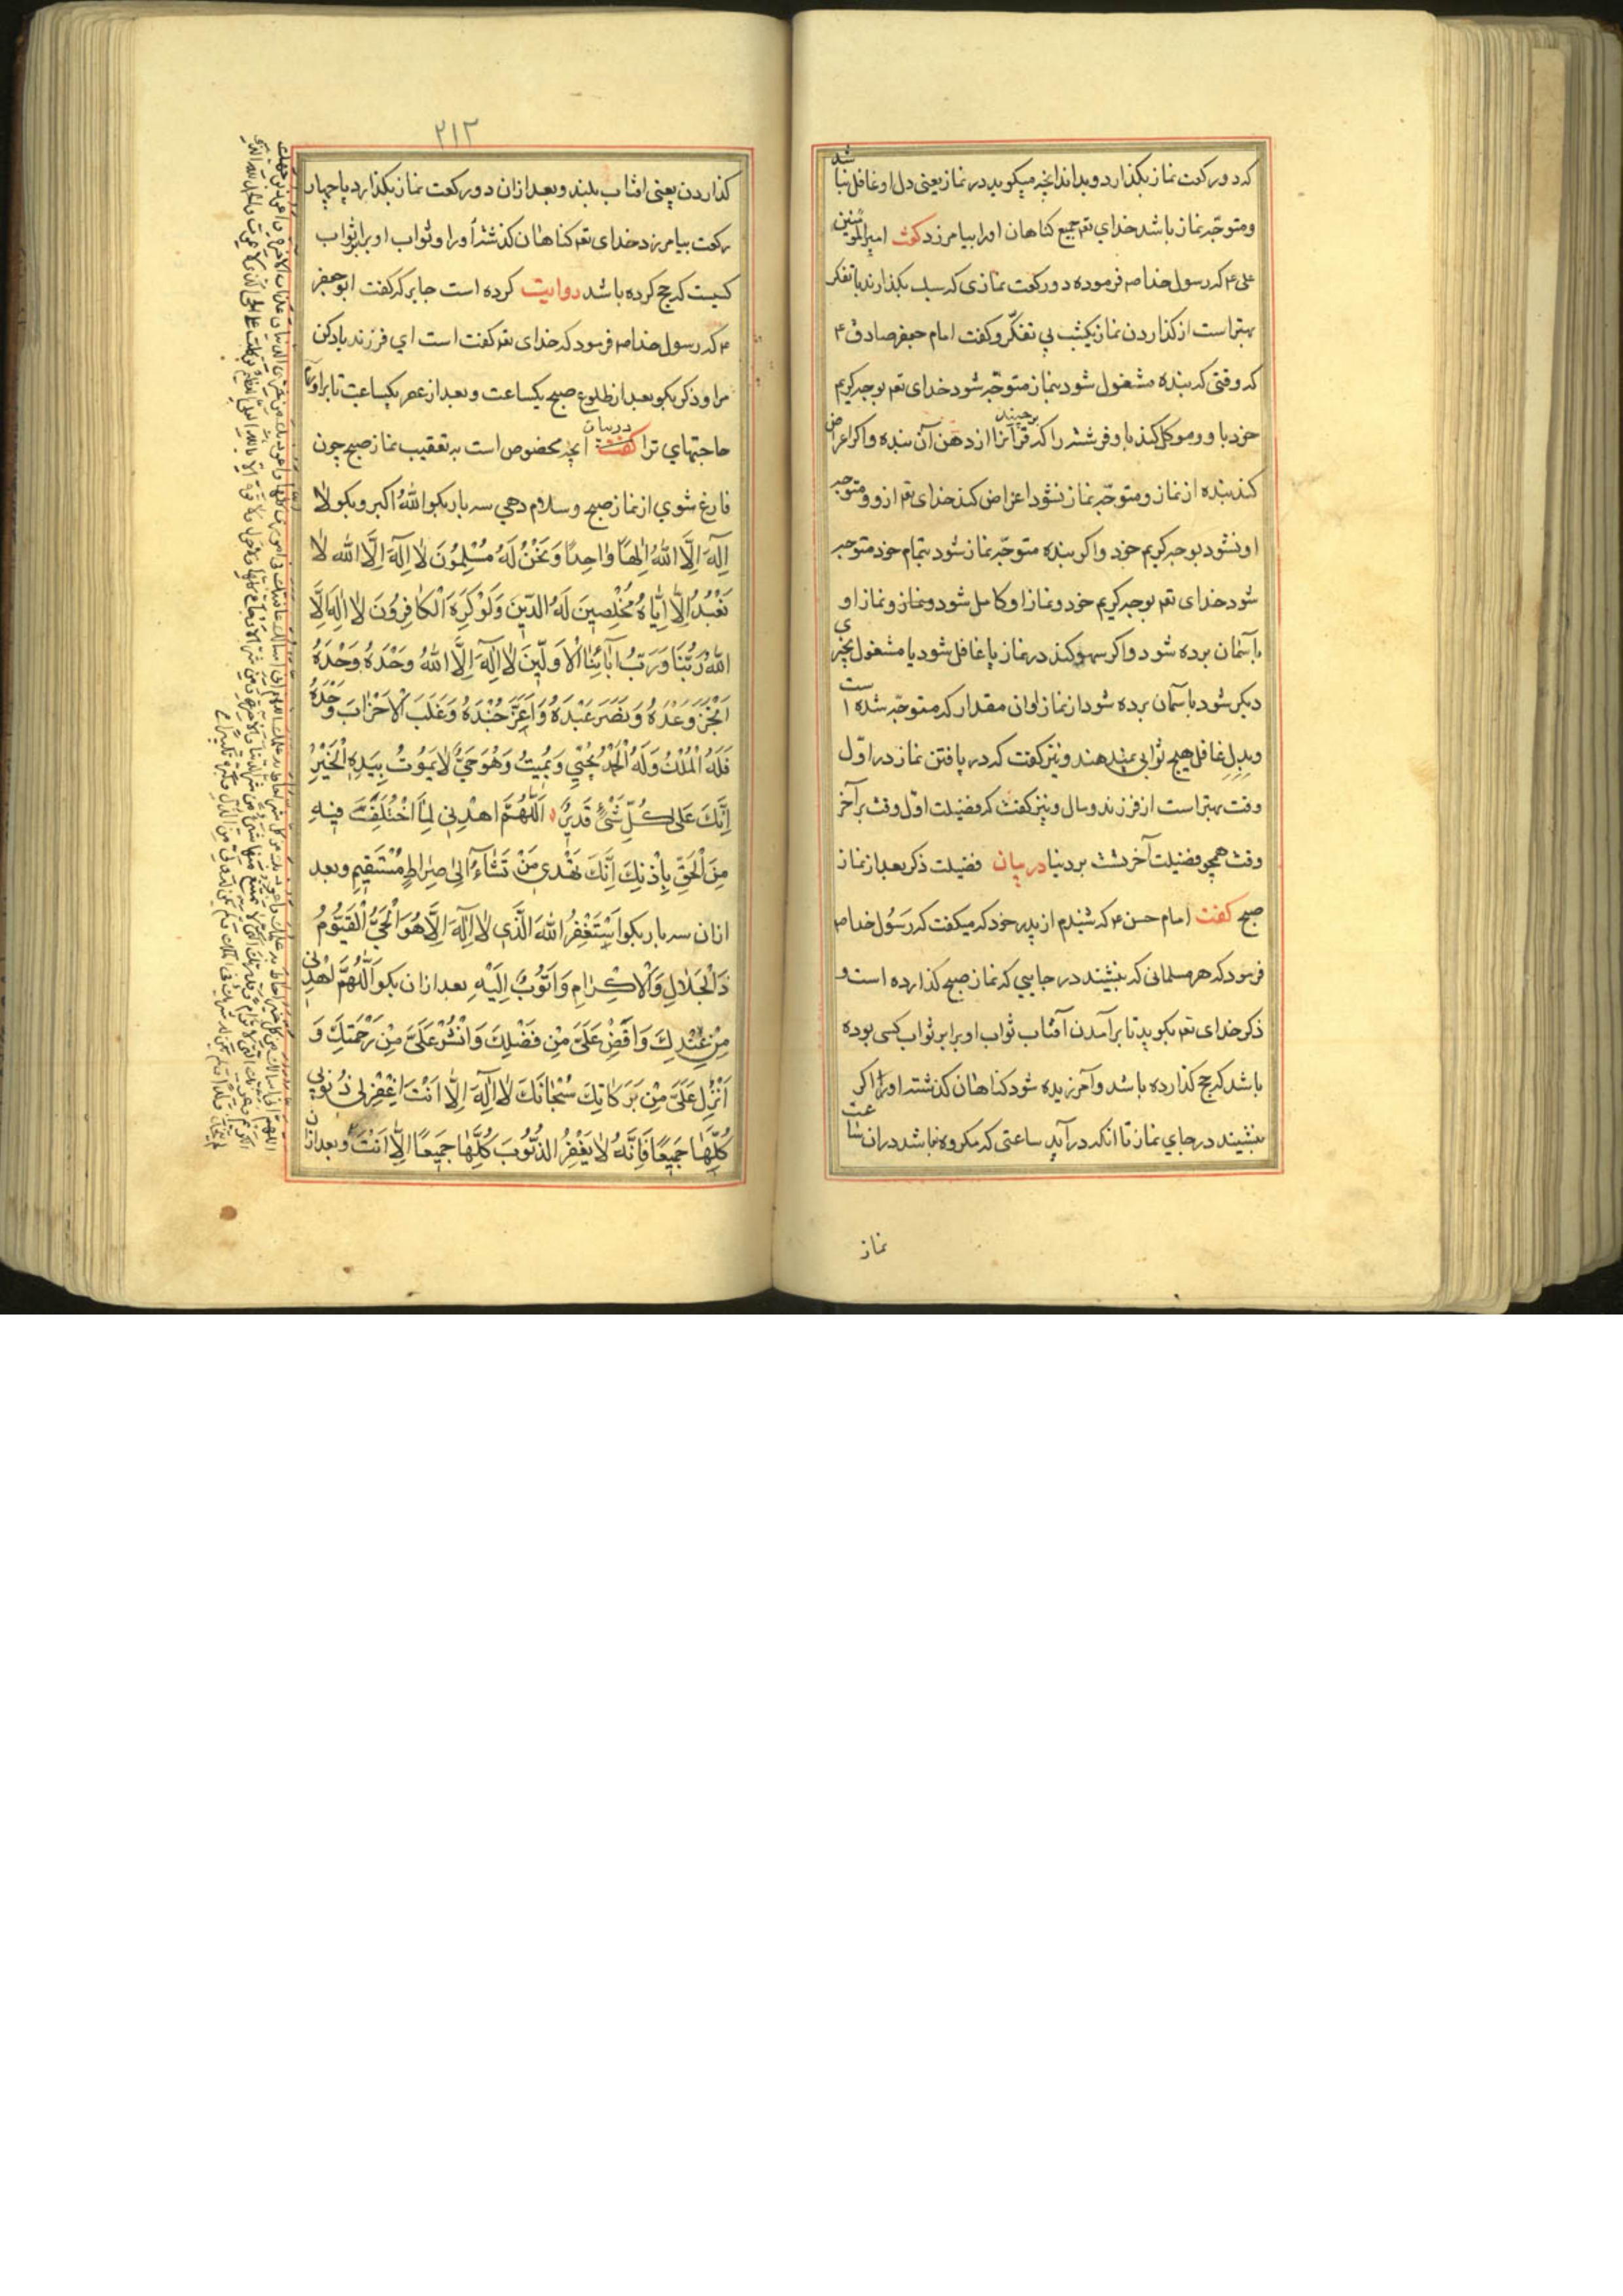 که دو رکعت نماز بگذارد و بداند انچه میکوید در نماز یعنی دل او غافل نباشد
و متوجّه نماز باشد خدای تعم جمیع کناهان اورا بیامرزد کفت امیرالمؤمنین
علی ۴ که رسول خدا صم فرموده دو رکعت نمازی که سبک بکذارند با تفکر
بهتر است از کذاردن نماز یکشب بی تفکّر و کفت امام جعفر صادق ۴
که وقتی که بنده مشغول شود بنماز متوجّه شود خدای تعم بوجه کریم
خود باو و موکل کند باو فرشته را که قرآنرا از دهن آن بنده برچیند و اکر اعراض
کند بنده از نماز و متوجّه نماز نشود اعراض کند خدای تعم ازو و متوجه
او نشود بوجه کریم خود و اکر بنده متوجّه نماز شود بتمام خود متوجه
شود خدای تعم بوجه کریم خود و نماز او کامل شود و نماز او
بآسمان برده شود و اکر سهو کند در نماز یا غافل شود یا مشغول بچیزی
دیکر شود بآسمان برده شود از نماز او ان مقدار که متوجّه شده است
و بدل غافل هیچ ثوابی نمیدهند و نیز کفت که دریافتن نماز در اوّل
وقت بهتر است از فرزند و مال و نیز کفت که فضیلت اوّل وقت بر آخر
وقت همچو فضیلت آخرتست بر دنیا در بیان فضیلت ذکر بعد از نماز
صبح کفت امام حسن ۴ که شنیدم از پدر خود که میکفت که رسول خدا صم
فرمود که هر مسلمانی که بنشیند در جایی که نماز صبح کذارده است و
ذکر خدای تعم بکوید تا برآمدن آفتاب ثواب او برابر ثواب کسی بوده
باشد که حج کذارده باشد و آمرزیده شود کناهان کذشته اورا و اکر
بنشیند در جای نماز تا انکه در آید ساعتی که مکروه نباشد در ان ساعت
نماز
۲۱۳
کذاردن یعنی افتاب بلند و بعد از ان دو رکعت نماز بکذارد یا چهار
رکعت بیامرزد خدای تعم کناهان کذشته اورا و ثواب او برابر ثواب
کسیست که حج کرده باشد روایت کرده است جابر که کفت ابو جعفر
۴ که رسول خدا صم فرمود که خدای تعم کفت است ای فرزند یاد کن
مرا و ذکر بکو بعد از طلوع صبح یکساعت و بعد از عصر یکساعت تا براورم
حاجتهای ترا در بیان انچه مخصوص است به تعقیب نماز صبح چون
فارغ شوی از نماز صبح و سلام دهی سه بار بکو اللّٰهُ اکبر و بکو لا
اِلٰهَ اِلَّا اللّٰهُ اِلٰهًا وٰاحِدًا وَنَحْنُ لَهُ مُسْلِمُونَ لا اِلٰهَ اِلَّا اللّٰه لا
نَعْبُدُ اِلَّا اِيّاهُ مُخْلِصِينَ لَهُ الدّينَ وَلَوْ كَرِهَ الْكٰافِرُونَ لا اِلٰهَ اِلَّا
اللّٰهُ رَبُّنَا وَرَبُّ اٰبٰائِنَا الْاَوَّلِينَ لا اِلٰهَ اِلَّا اللّٰهُ وَحْدَهُ وَحْدَهُ وَحْدَهُ
اَنْجَزَ وَعْدَهُ وَنَصَرَ عَبْدَهُ وَاَعَزَّ جُنْدَهُ وَغَلَبَ الْاَحْزٰابَ وَحْدَهُ
فَلَهُ الْمُلْكُ وَلَهُ الْحَمْدُ يُحْيِي وَيُمِيتُ وَهُوَ حَيٌّ لا يَمُوتُ بِيَدِهِ الْخَيْرُ
اِنَّكَ عَلٰى كُلِّ شَيْءٍ قَدِيرٌ اَللّٰهُمَّ اهْدِنِي لِمَا اخْتُلِفَ فِيهِ
مِنَ الْحَقِّ بِاِذْنِكَ اِنَّكَ تَهْدِي مَنْ تَشٰاءُ اِلٰى صِرٰاطٍ مُسْتَقِيمٍ و بعد
ازان سه بار بکو اَسْتَغْفِرُ اللّٰهَ الَّذِي لا اِلٰهَ اِلَّا هُوَ الْحَيُّ الْقَيُّومُ
ذُو الْجَلٰالِ وَالْاِكْرٰامِ وَاَتُوبُ اِلَيْهِ بعد ازان بکو اَللّٰهُمَّ اهْدِنِي
مِنْ عِنْدِكَ وَاَفِضْ عَلَيَّ مِنْ فَضْلِكَ وَانْشُرْ عَلَيَّ مِنْ رَحْمَتِكَ وَ
اَنْزِلْ عَلَيَّ مِنْ بَرَكٰاتِكَ سُبْحٰانَكَ لا اِلٰهَ اِلَّا اَنْتَ اغْفِرْ لِي ذُنُوبِي
كُلَّهٰا جَمِيعًا فَاِنَّهُ لا يَغْفِرُ الذُّنُوبَ كُلَّهٰا جَمِيعًا اِلَّا اَنْتَ و بعد ازان